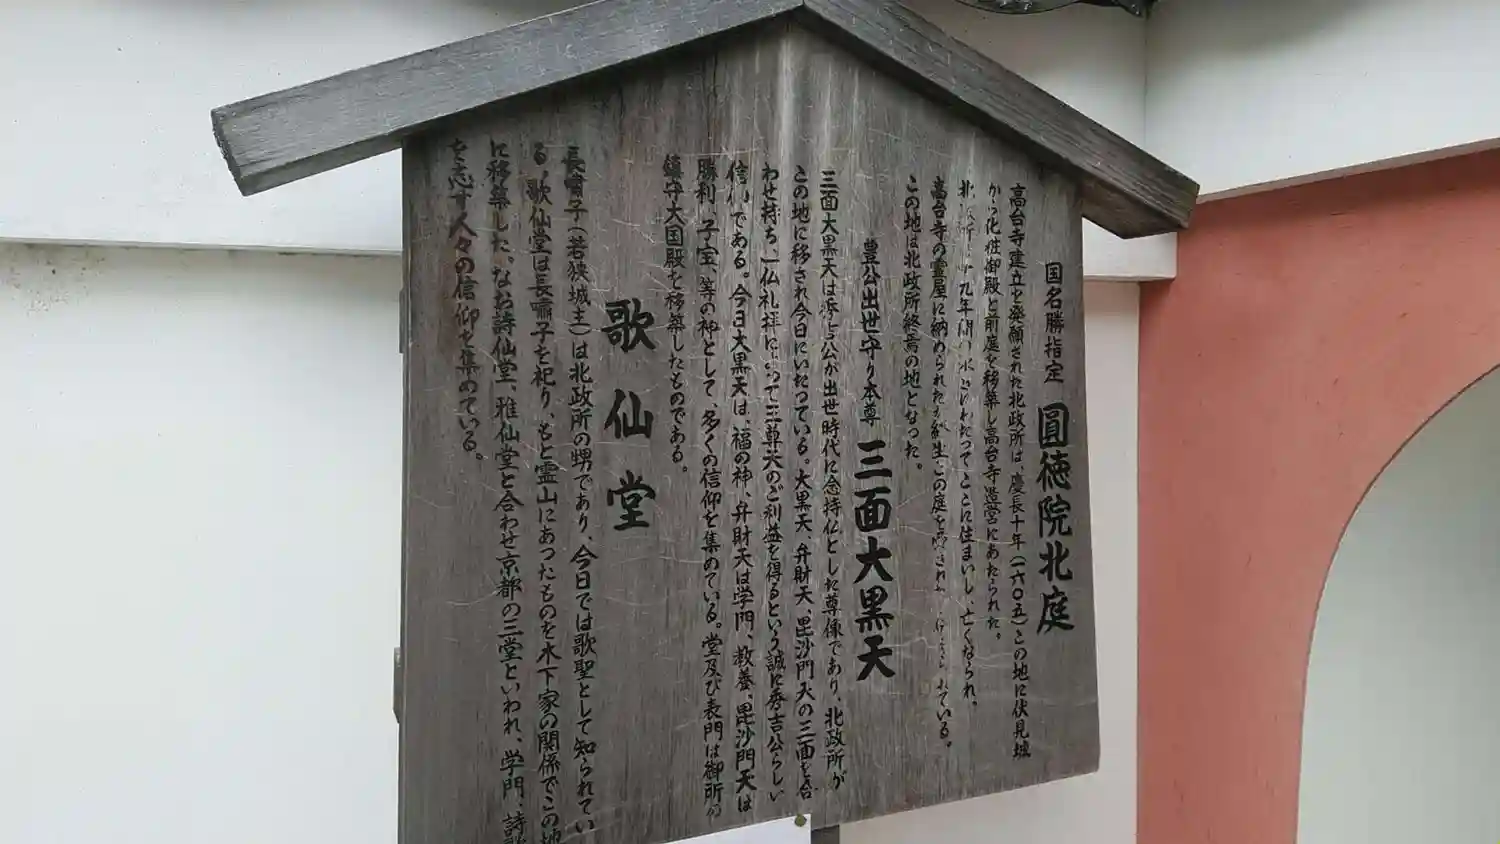 国名勝指定 圓徳院北庭
高台寺建立を発願された北政所は、慶長十年(一六〇五)この地に伏見城
から化粧御殿と前庭を移築し高台寺造営にあたられた。
北政所 十九年間 にわたってここに住まいし、亡くなられ、
高台寺の霊屋に納められたが終生この庭を されている。
この地は北政所終焉の地となった。
豊公出世守り本尊 三面大黒天
三面大黒天は秀吉公が出世時代に念持仏とした尊像であり、北政所が
この地に移され今日にいたっている。大黒天、弁財天、毘沙門天の三面を合
わせ持ち、一仏礼拝によって三尊天のご利益を得るという誠に秀吉公らしい
信仰である。今日大黒天は、福の神、弁財天は学問、教養、毘沙門天は
勝利、子宝、等の神として、多くの信仰を集めている。堂及び表門は御所の
鎮守大国殿を移築したものである。
歌仙堂
長嘯子(若狭城主)は北政所の甥であり、今日では歌聖として知られてい
る。歌仙堂は長嘯子を祀り、もと霊山にあったものを木下家の関係でこの地
に移築した。なお詩仙堂、雅仙堂と合わせ京都の三堂といわれ、学問、詩歌
を志す人々の信仰を集めている。